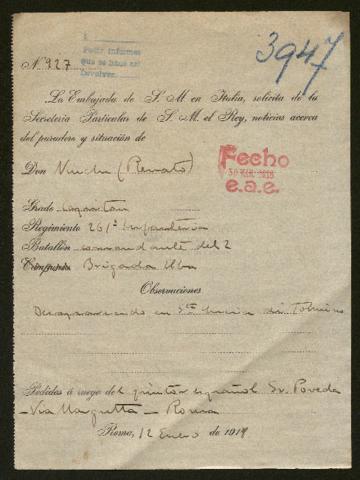 Pedir informes
que se haga al
devolver.
3947
Nº 927
La Embajada de S. M. en Italia, solicita de la
Secretaría Particular de S. M. el Rey, noticias acerca
del paradero y situación de
Don (Renato)
Fecho
e.a.e.
Grado capitan
Regimiento 261º Infanteria
Batallón commandante del 2
Compañía Brigada Elba
Observaciones
Desaparecido en Sta Lucia di Tolmino
Pedidos á ruego del pintor español Sr. Poveda
- Via Margutta - Roma
Roma, 12 Enero de 191